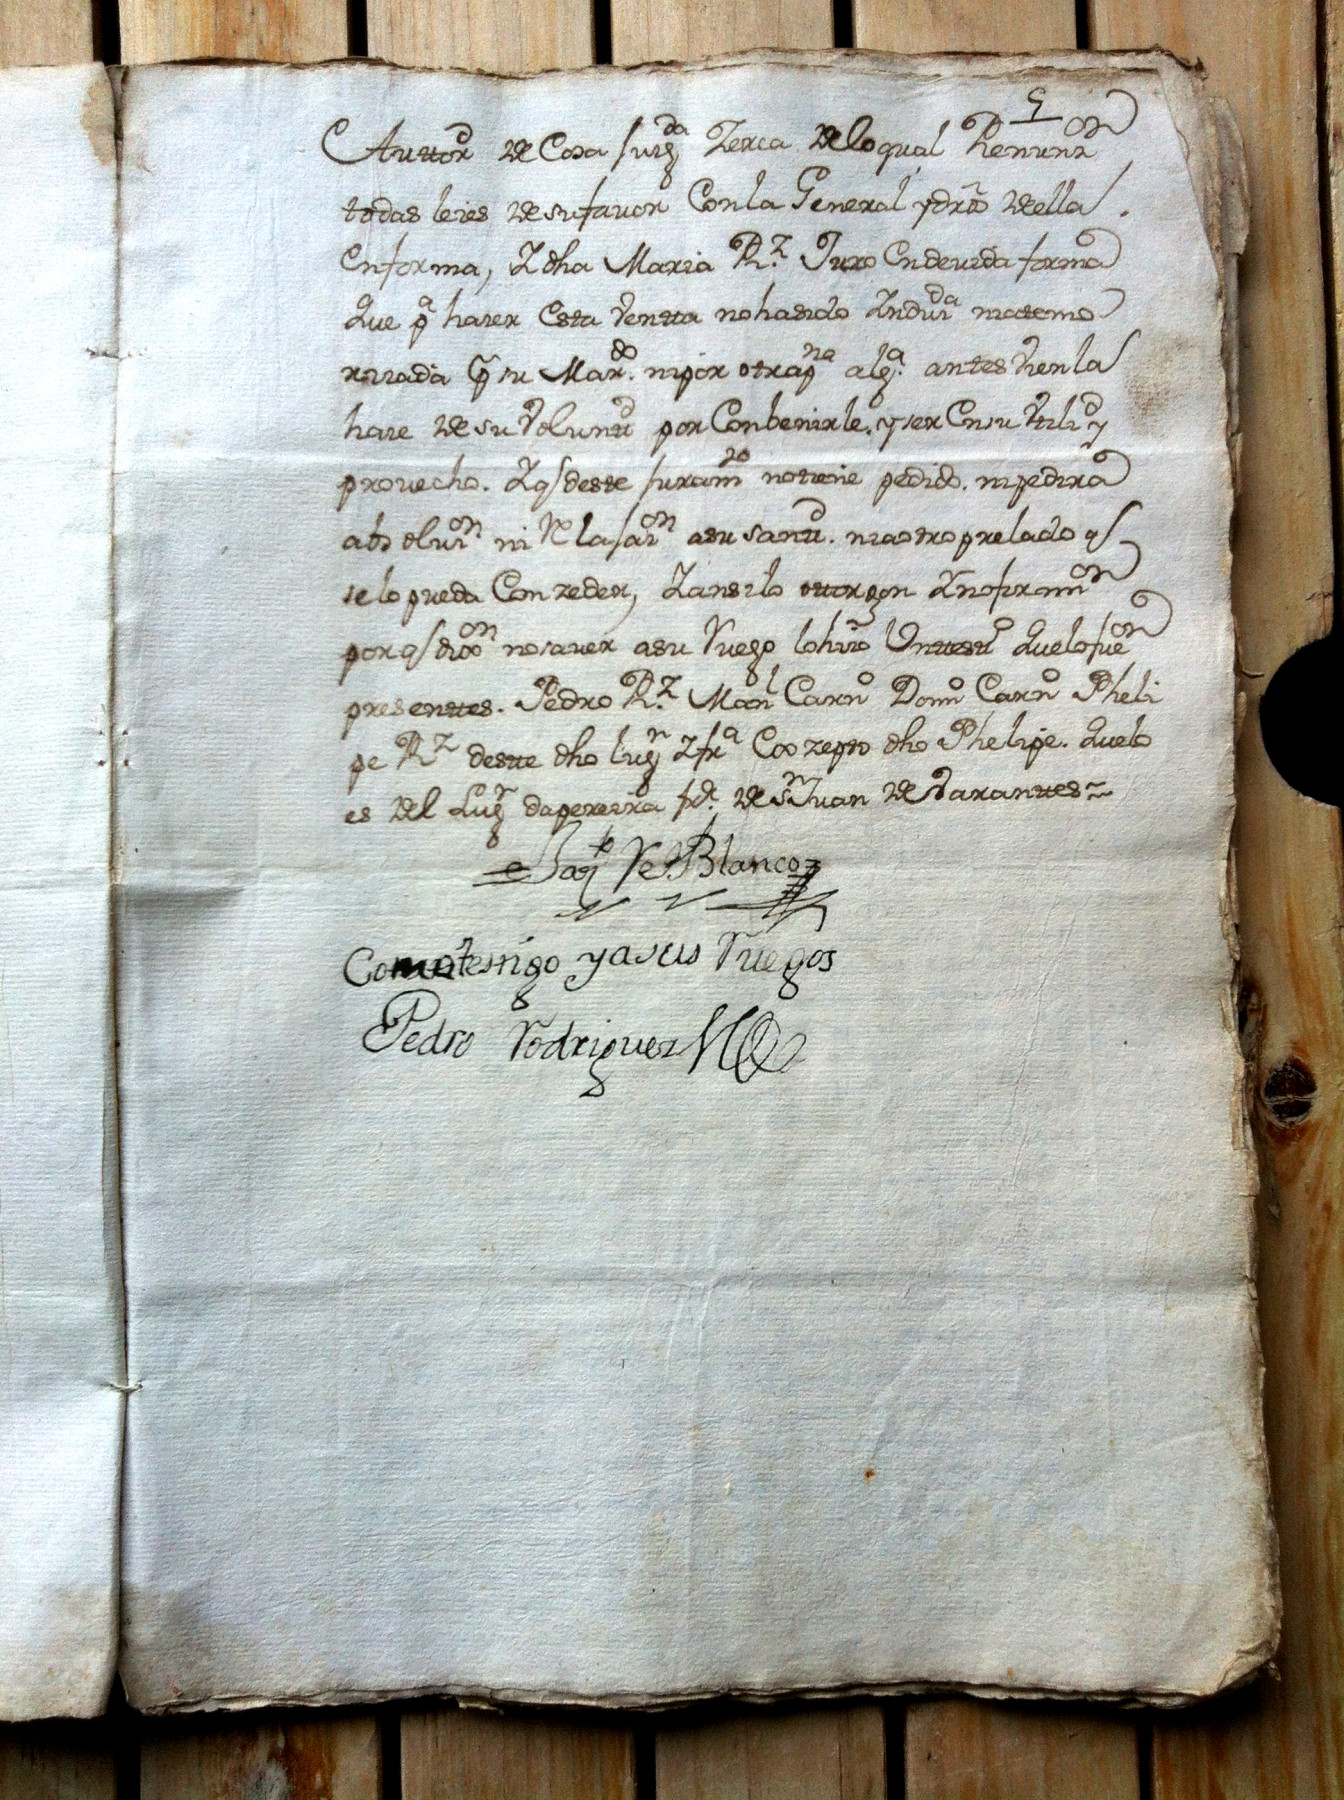 Auttor de Cosa Juzgda Zerca de lo qual Renunzon
todas leies de su favor Con la General y dro de ella
En forma, Y dha Maria Rz Juro En devida forma
Que pa hazer Esta Ventta no ha sido Induzda ni atemo
rizada pr su Mardo. ni por otra pna alga. antes vien la
haze de su Volunttd por Conbenirle. y ser En su Utilid y
provecho. Y q deste Juramto no tiene pedido. ni pedira
absoluzon ni Relajazon a su Santtd. ni a otro prelado q
se lo pueda Conzeder, Y ansi lo ottorgon Y no firmon
por q dixon no saver a su Ruego lo hizo Un testto Que lo fueon
presenttes. Pedro Rz Manl Carno Domo Carno Pheli
pe Rz destte dho lugr Y fra Eco zepto dho Phelipe. Quelo
es del Lugr da pereira fda. de Sn Juan de Baranttes
Como testigo y a sus Ruegos
Pedro Rodriguez